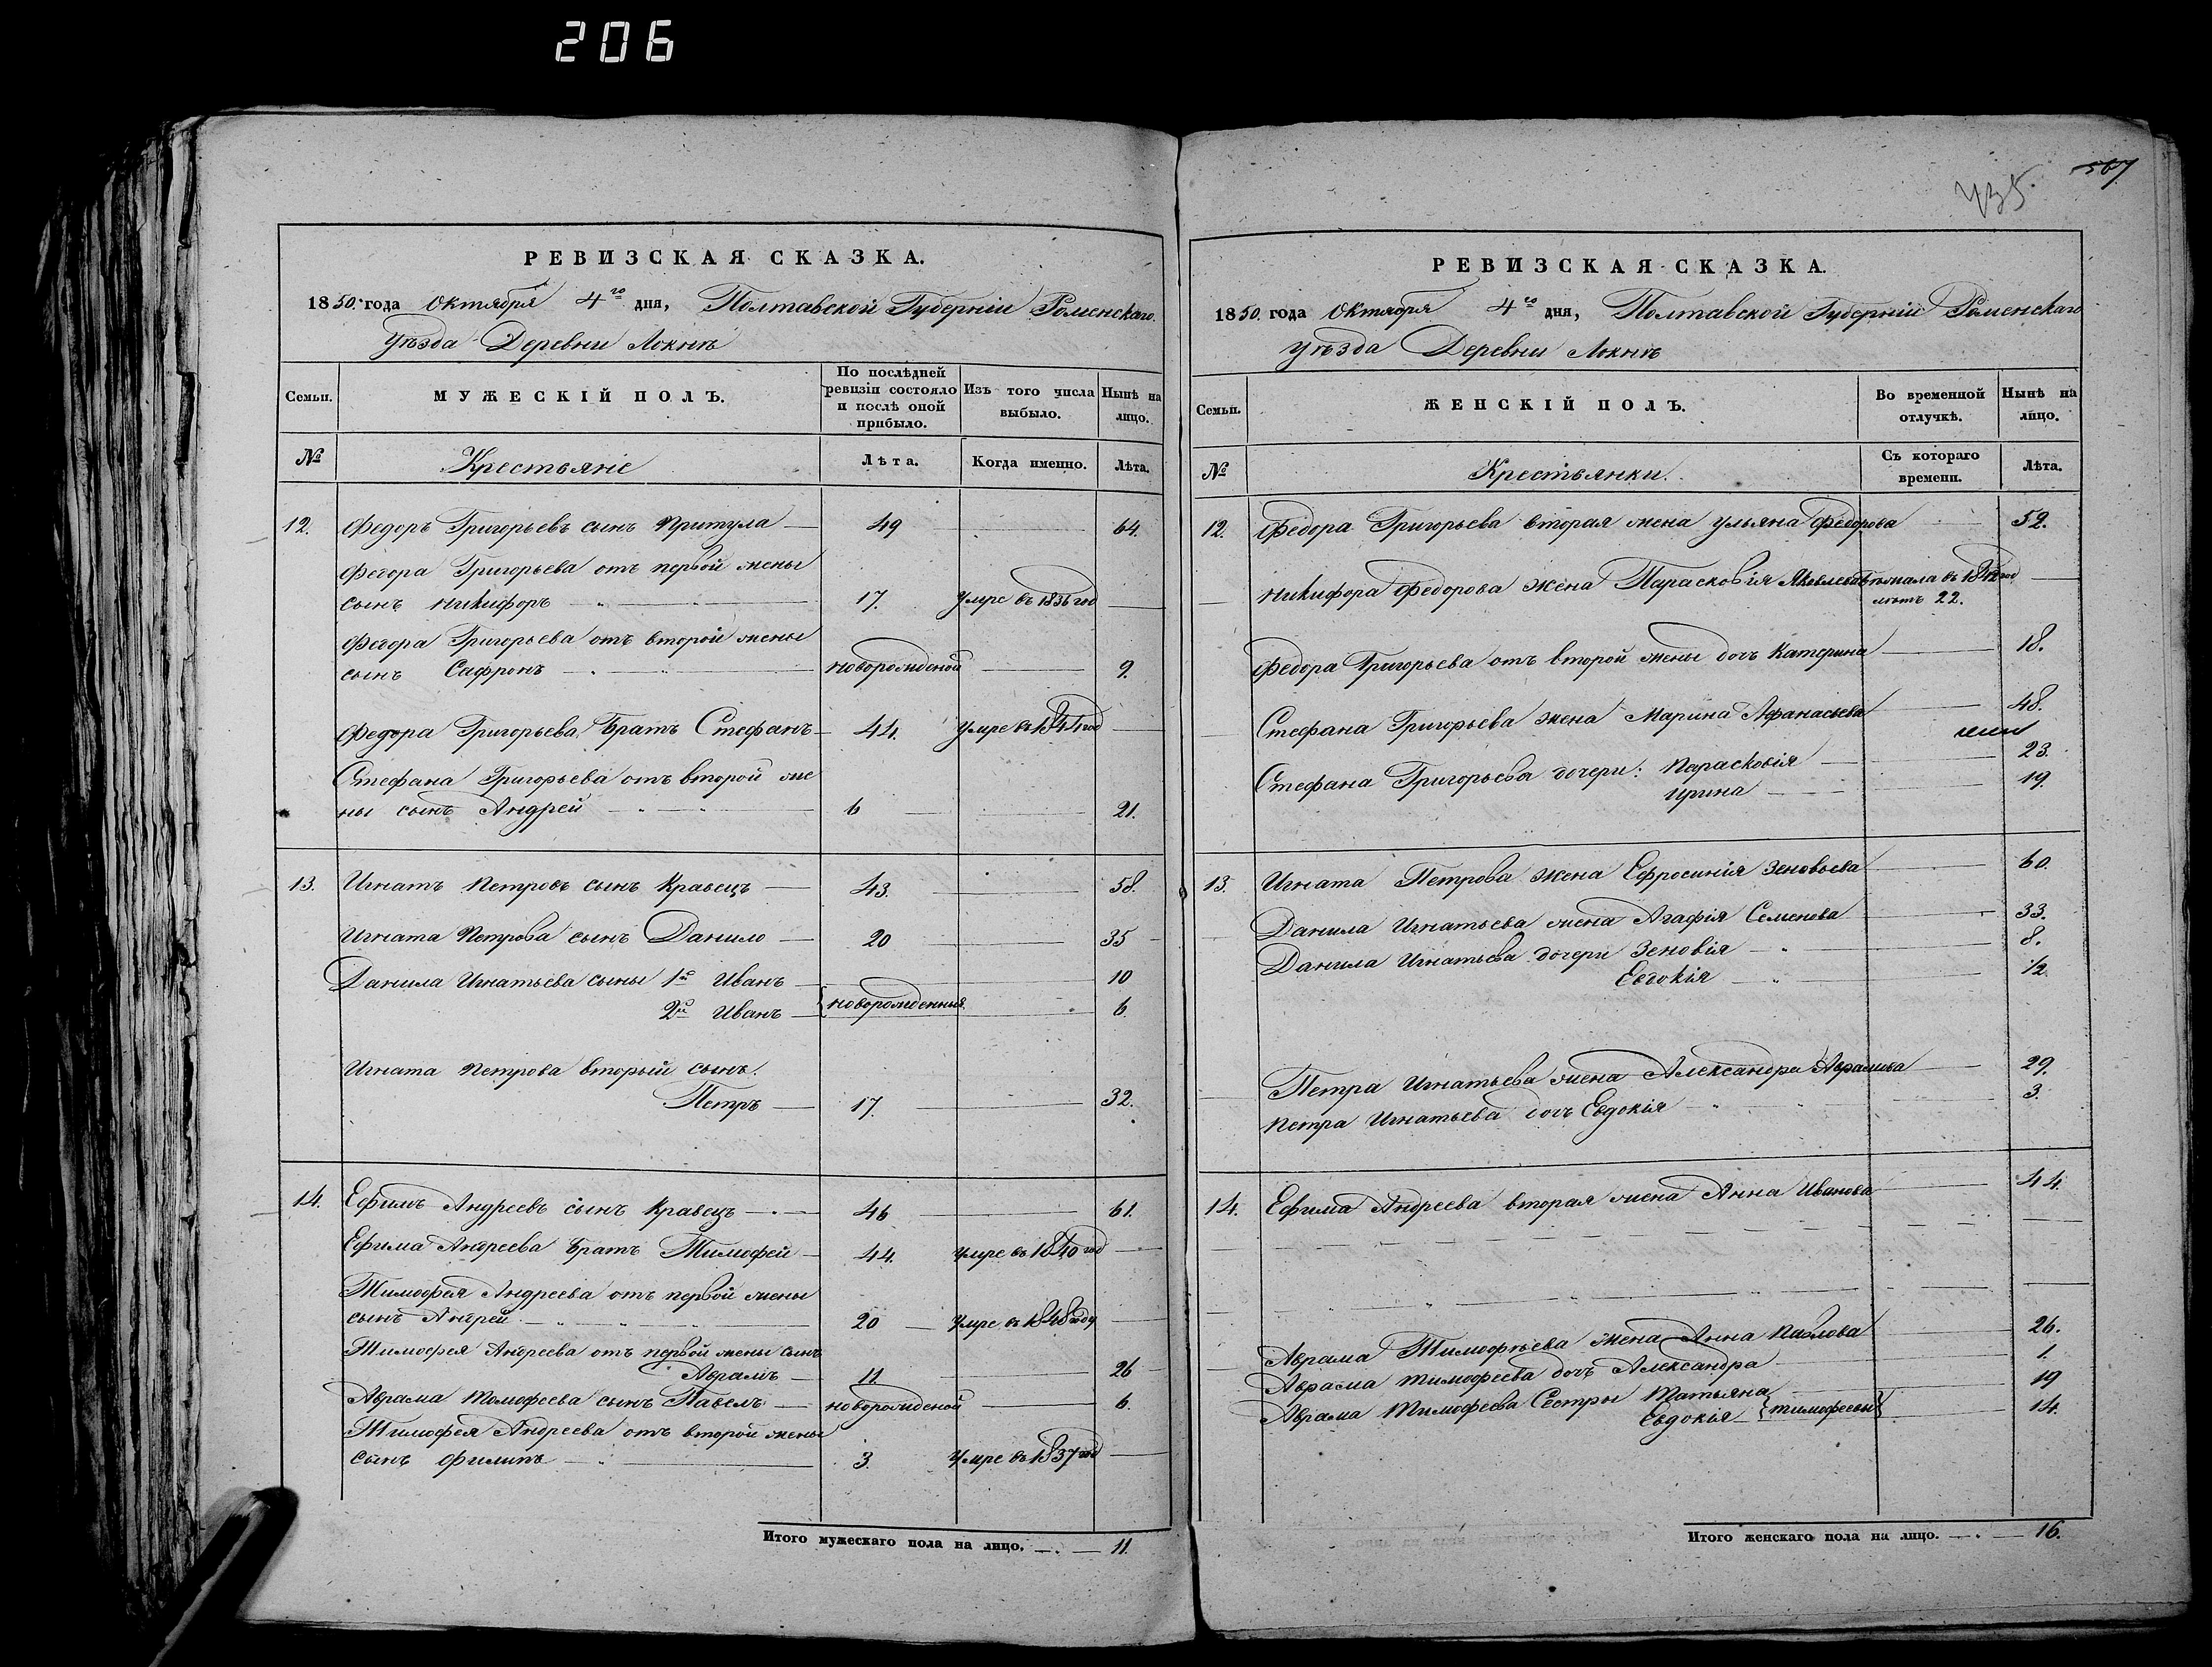 206
РЕВИЗСКАЯ СКАЗКА.
1850. года Октября 4го дня, Полтавской Губерніи Роменскаго
Уѣзда Деревни Локнѣ
Семьи. МУЖЕСКІЙ ПОЛЪ. По послѣдней ревизіи состояло и послѣ оной прибыло. Изъ того числа выбыло. Нынѣ на лицо.
№ Крестьяне Лѣта. Когда именно. Лѣта.
12. Федоръ Григорьевъ сынъ Притула 49 64.
Федора Григорьева отъ первой жены
сынъ Никифоръ 17. Умре въ 1836 год
Федора Григорьева отъ второй жены
сынъ Сафронъ новорожденой 9.
Федора Григорьева Братъ Стефанъ 44. Умре въ 1844 год
Стефана Григорьева отъ второй же
ны сынъ Андрей 6 21.
13. Игнатъ Петровъ сынъ Кравецъ 43. 58.
Игната Петрова сынъ Данило 20 35
Данила Игнатьева сыны 1й Иванъ 10
2й Иванъ новорожденныя 6.
Игната Петрова вторый сынъ
Петръ 17. 32.
14. Ефимъ Андреевъ сынъ Кравецъ 46 61.
Ефима Андреева братъ Тимофей 44. умре въ 1840 год
Тимофея Андреева отъ первой жены
сынъ Андрей 20 Умре въ 1848 году
Тимофея Андреева отъ первой жены сынъ
Аврамъ 11. 26
Аврама Томофеева сынъ Павелъ новорожденой 6.
Тимофея Андреева отъ второй жены
сынъ Филипъ 3. Умре въ 1837 год
Итого мужескаго пола на лицо. 11.
435.
567
РЕВИЗСКАЯ СКАЗКА.
1850. года Октября 4го дня, Полтавской Губерніи Роменскаго
Уѣзда Деревни Локнѣ
Семьи. ЖЕНСКІЙ ПОЛЪ. Во временной отлучкѣ. Нынѣ на лицо.
№ Крестьянки. Съ котораго времени. Лѣта.
12. Федора Григорьева вторая жена Ульяна Федорова 52.
Никифора Федорова жена Парасковія Яковлева бѣжала въ 1842 год
лѣтъ 22.
Федора Григорьева отъ второй жены дочь Катерина 18.
Стефана Григорьева жена Марина Афанасьева 48.
Стефана Григорьева дочери: Парасковія 23.
Ирина 19.
13. Игната Петрова жена Ефросинія Зеновьева 60.
Данила Игнатьева жена Агафія Семенова 33.
Данила Игнатьева дочери Зеновія 8.
Евдокія 1/2
Петра Игнатьева жена Александра Аврамова 29.
Петра Игнатьева дочь Евдокія 3.
14. Ефима Андреева вторая жена Анна Иванова 44.
Аврама Тимофѣева жена Анна Павлова 26.
Аврама Тимофеева дочь Александра 1.
Аврама Тимофеева Сестры Татьяна 19
Евдокія {тимофеевы} 14.
Итого женскаго пола на лицо. 16.